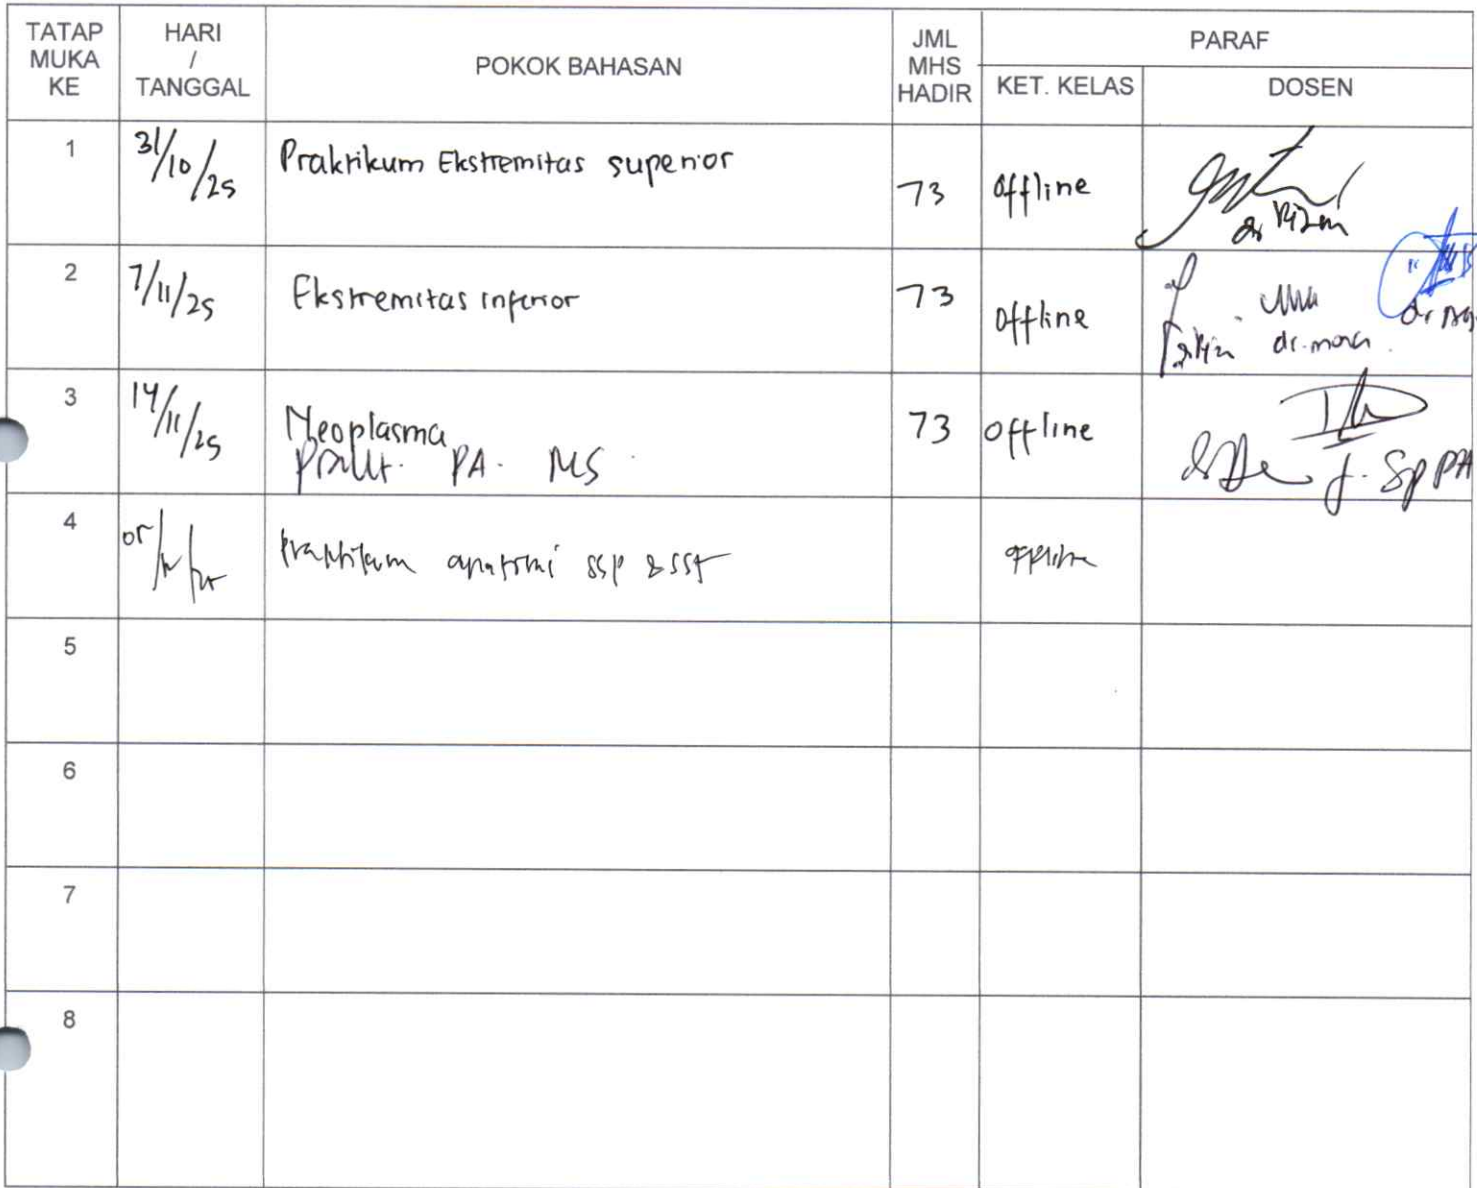 TATAP MUKA KE
HARI / TANGGAL
POKOK BAHASAN
JML MHS HADIR
PARAF
KET. KELAS
DOSEN
1
31/10/25
Praktikum Ekstremitas superior
73
offline
2
7/11/25
Ekstremitas inferior
73
offline
dr.
dr
3
14/11/25
Neoplasma
73
offline
PA. MS
Sp PA
4
Praktikum anatomi ssp & sst
offline
5
6
7
8